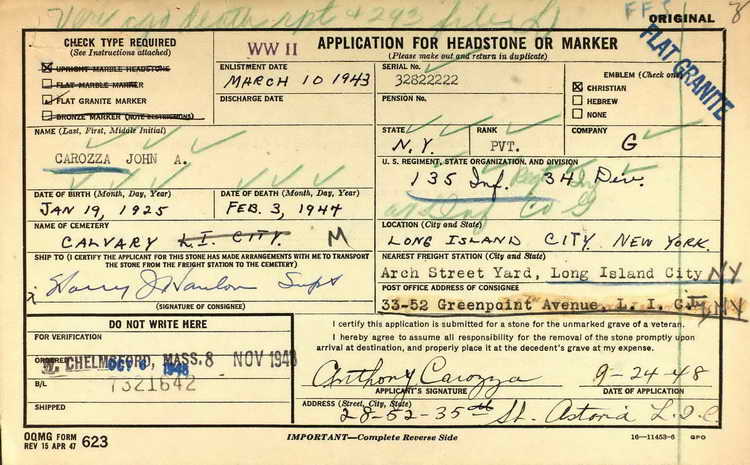 Very ago death rpt + 293 filed
FF
ORIGINAL
8
FLAT GRANITE
CHECK TYPE REQUIRED
(See Instructions attached)
UPRIGHT MARBLE HEADSTONE
FLAT MARBLE MARKER
FLAT GRANITE MARKER
BRONZE MARKER (NOTE RESTRICTIONS)
WW II
APPLICATION FOR HEADSTONE OR MARKER
(Please make out and return in duplicate)
ENLISTMENT DATE
MARCH 10 1943
DISCHARGE DATE
SERIAL No.
32822222
PENSION No.
EMBLEM (Check one)
CHRISTIAN
HEBREW
NONE
NAME (Last, First, Middle Initial)
CAROZZA JOHN A.
STATE
N.Y.
RANK
PVT.
COMPANY
G
U. S. REGIMENT, STATE ORGANIZATION, AND DIVISION
135 Inf. 34 Div.
Co G
DATE OF BIRTH (Month, Day, Year)
JAN 19, 1925
DATE OF DEATH (Month, Day, Year)
FEB. 3, 1944
NAME OF CEMETERY
CALVARY L.I. CITY. M
LOCATION (City and State)
LONG ISLAND CITY. NEW YORK.
SHIP TO (I CERTIFY THE APPLICANT FOR THIS STONE HAS MADE ARRANGEMENTS WITH ME TO TRANSPORT
THE STONE FROM THE FREIGHT STATION TO THE CEMETERY)
Harry J Hanlon Supt
(SIGNATURE OF CONSIGNEE)
NEAREST FREIGHT STATION (City and State)
Arch Street Yard, Long Island City NY
POST OFFICE ADDRESS OF CONSIGNEE
33-52 Greenpoint Avenue, L. I. C. 1, NY
DO NOT WRITE HERE
FOR VERIFICATION
ORDERED
W. CHELMSFORD, MASS. 8 NOV 1948
OCT 6 1948
B/L
7321642
SHIPPED
I certify this application is submitted for a stone for the unmarked grave of a veteran.
I hereby agree to assume all responsibility for the removal of the stone promptly upon
arrival at destination, and properly place it at the decedent's grave at my expense.
Anthony Carozza 9-24-48
APPLICANT'S SIGNATURE DATE OF APPLICATION
ADDRESS (Street, City, State)
28-52-35th St. Astoria L.I.C.
OQMG FORM
REV 15 APR 47 623
IMPORTANT—Complete Reverse Side
16—11453-6 GPO